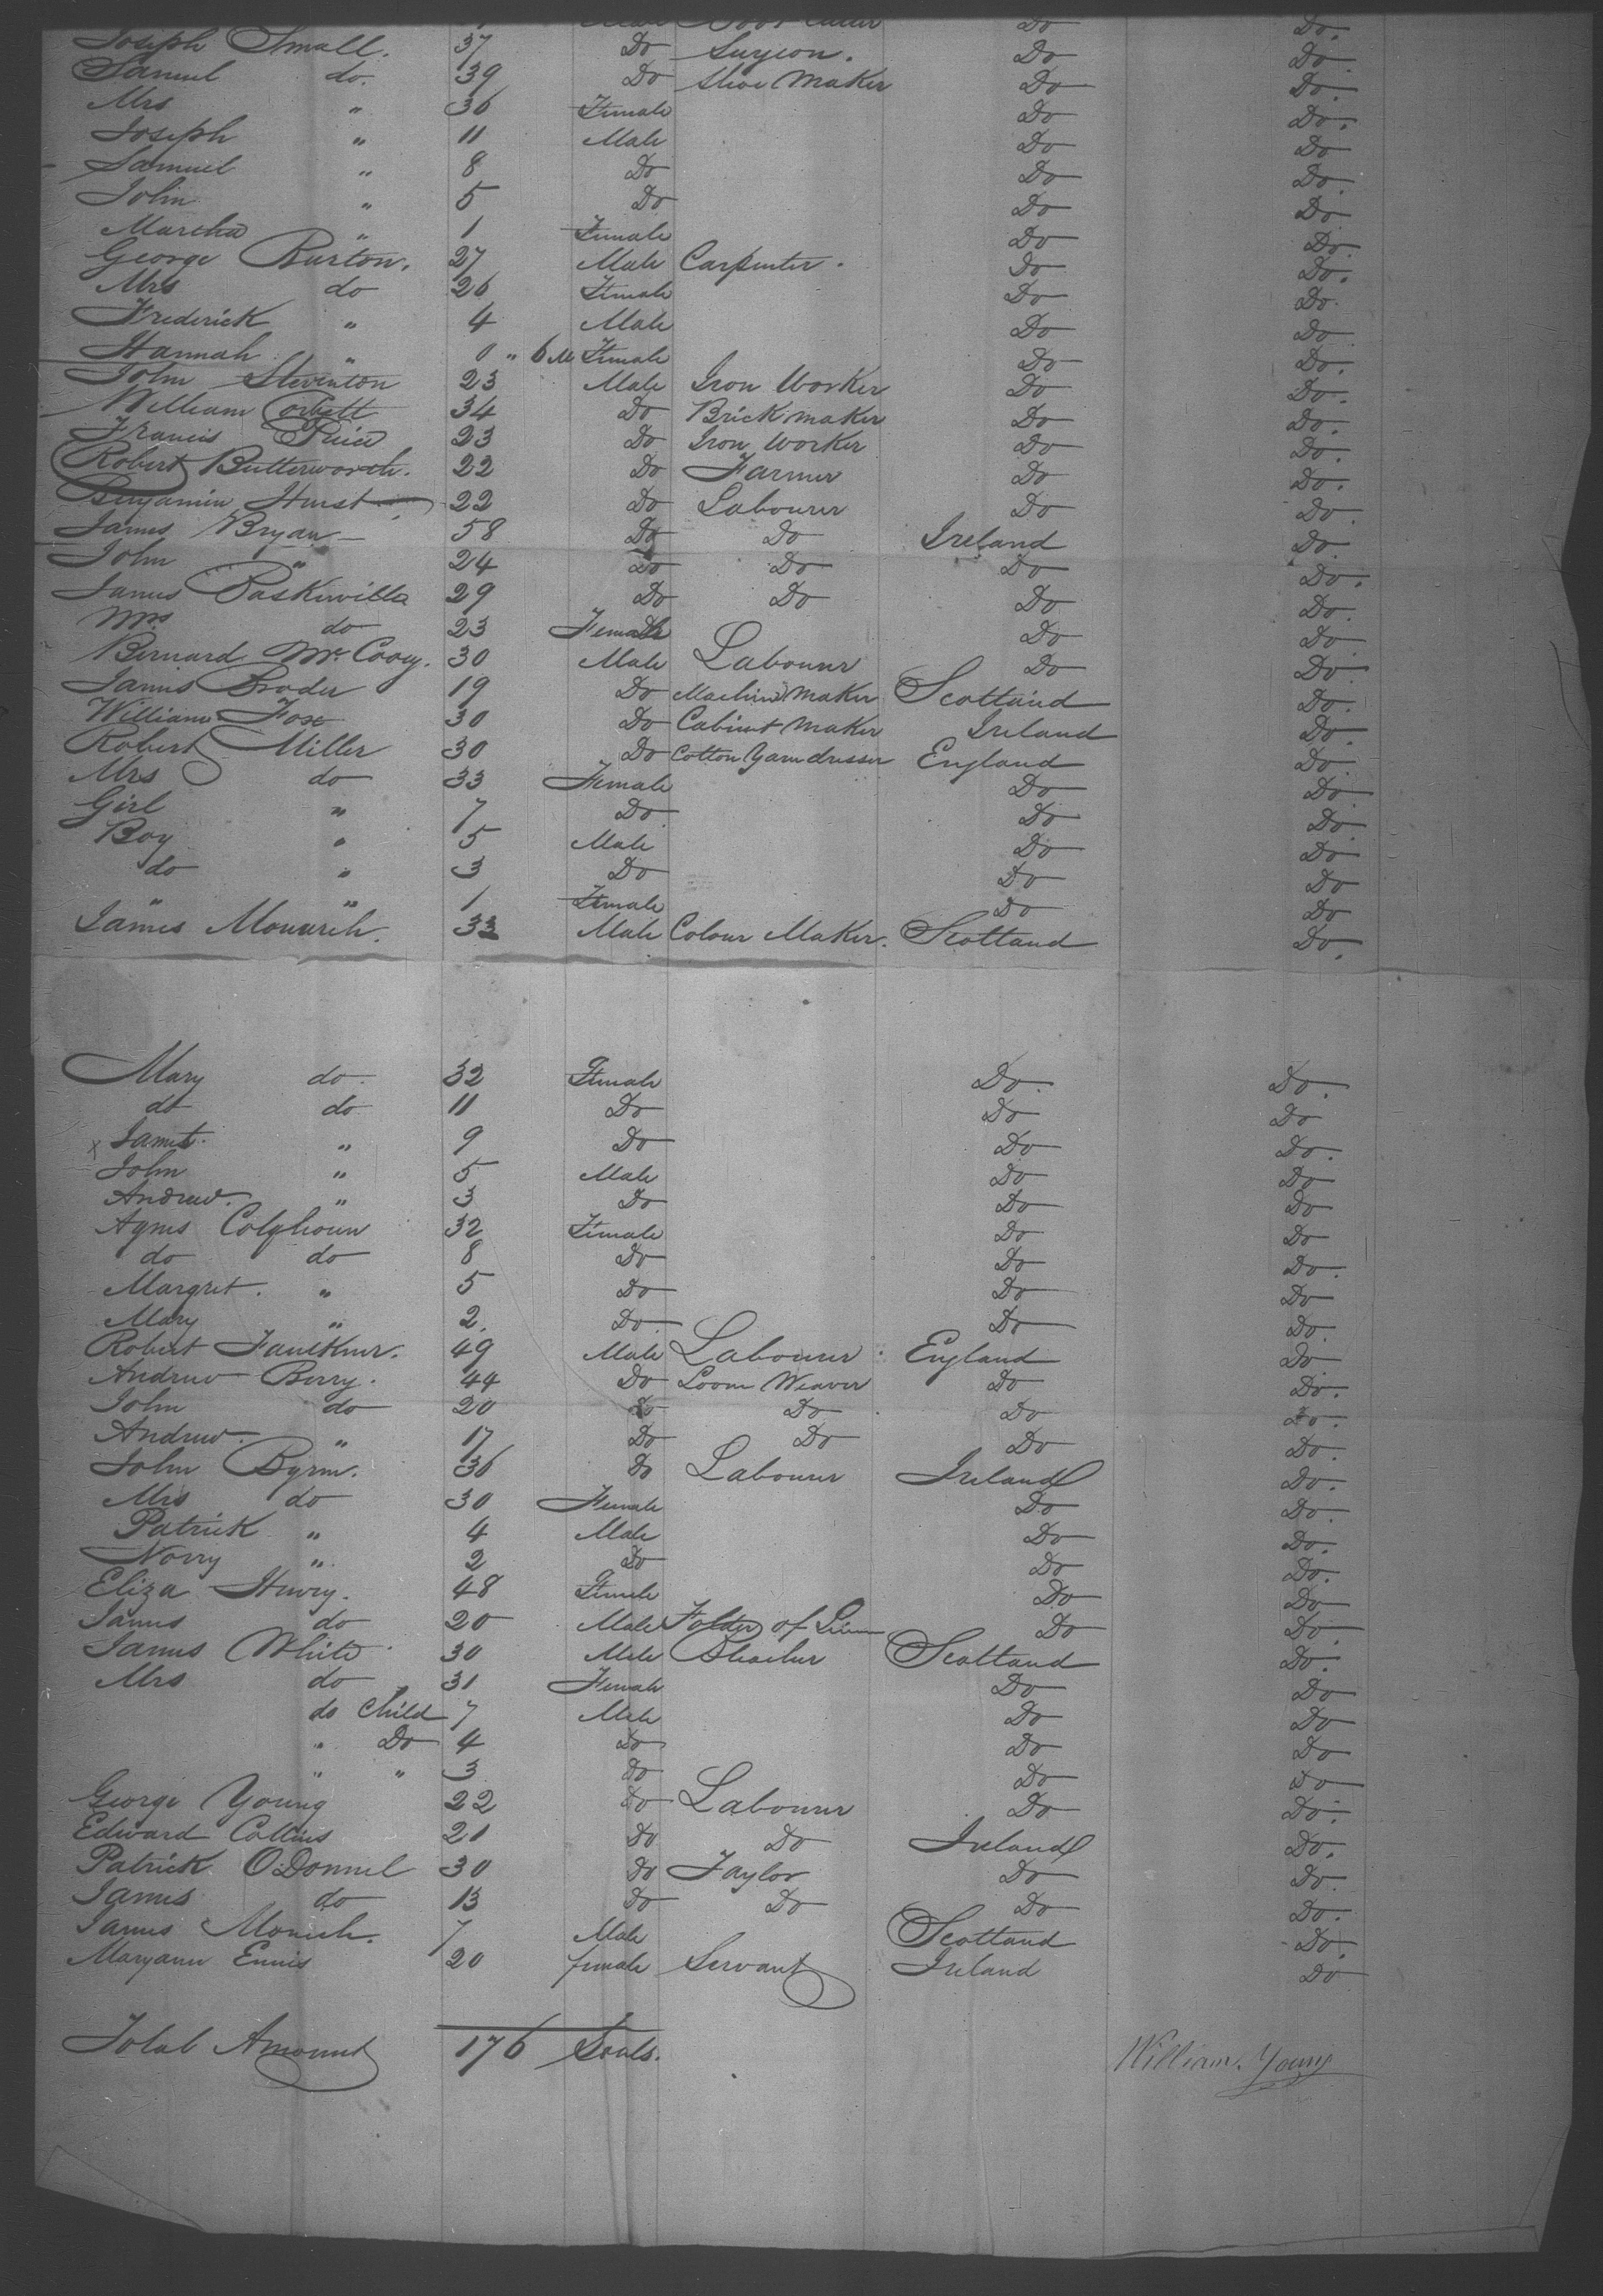 Do Do.
Joseph Small. 37 Do Surgeon. Do Do.
Samuel do. 39 Do Shoe Maker Do Do.
Mrs " 36 Female Do Do.
Joseph " 11 Male Do Do
Samuel " 8 Do Do Do.
John " 5 Do Do Do
Martha " 1 Female Do Do.
George Burton. 27 Male Carpenter. Do Do.
Mrs do 26 Female Do Do.
Frederick " 4 Male Do Do
Hannah " 0 " 6 Ms Female Do Do.
John Steventon 23 Male Iron Worker Do Do.
William Corbett 34 Do Brick maker Do Do.
Francis Price 23 Do Iron Worker Do Do.
Robert Butterworth. 22 Do Farmer Do Do.
Benjamin Hurst 22 Do Labourer Do Do.
James Bryan 58 Do Do Ireland Do.
John " 24 Do Do Do Do.
James Baskerville 29 Do Do Do Do.
Mrs do 23 Female Do Do
Bernard McCooey. 30 Male Labourer Do Do.
James Broder 19 Do Machine Maker Scotland Do.
William Fox 30 Do Cabinet Maker Ireland Do.
Robert Miller 30 Do Cotton Yarn dresser England Do.
Mrs do 33 Female Do Do.
Girl " 7 Do Do Do.
Boy " 5 Male Do Do
do " 3 Do Do Do
" " 1 Female Do Do
James Monarch. 33 Male Colour Maker. Scotland Do.
Mary do. 32 Female Do. Do.
do do 11 Do Do Do
x Janet. " 9 Do Do Do.
John " 5 Male Do Do
Andrew. " 3 Do Do Do
Agnes Colqhoun 32 Female Do Do
do do 8 Do Do Do.
Margret. " 5 Do Do Do
Mary " 2. Do Do Do.
Robert Faulkner. 49 Male Labourer England Do
Andrew Berry. 44 Do Loom Weaver Do Do.
John do 20 Do Do Do Do.
Andrew " 17 Do Do Do Do.
John Byrne. 36 Do Labourer Ireland Do.
Mrs do 30 Female Do Do.
Patrick " 4 Male Do Do.
Norry " 2 Do Do Do.
Eliza Henry. 48 Female Do Do
James do 20 Male Folder of Linen Do Do.
James White 30 Male Bleacher Scotland Do.
Mrs do 31 Female Do Do
do Child 7 Male Do Do
" Do 4 Do Do Do
" " 3 Do Do Do
George Young 22 Do Labourer Do Do.
Edward Collins 21 Do Do Ireland Do.
Patrick ODonnel 30 Do Taylor Do Do.
James do 13 Do Do Do Do.
James Monich. 7 Male Scotland Do.
Maryann Ennis 20 female Servant Ireland Do
Total Amount 176 Souls.
William Young